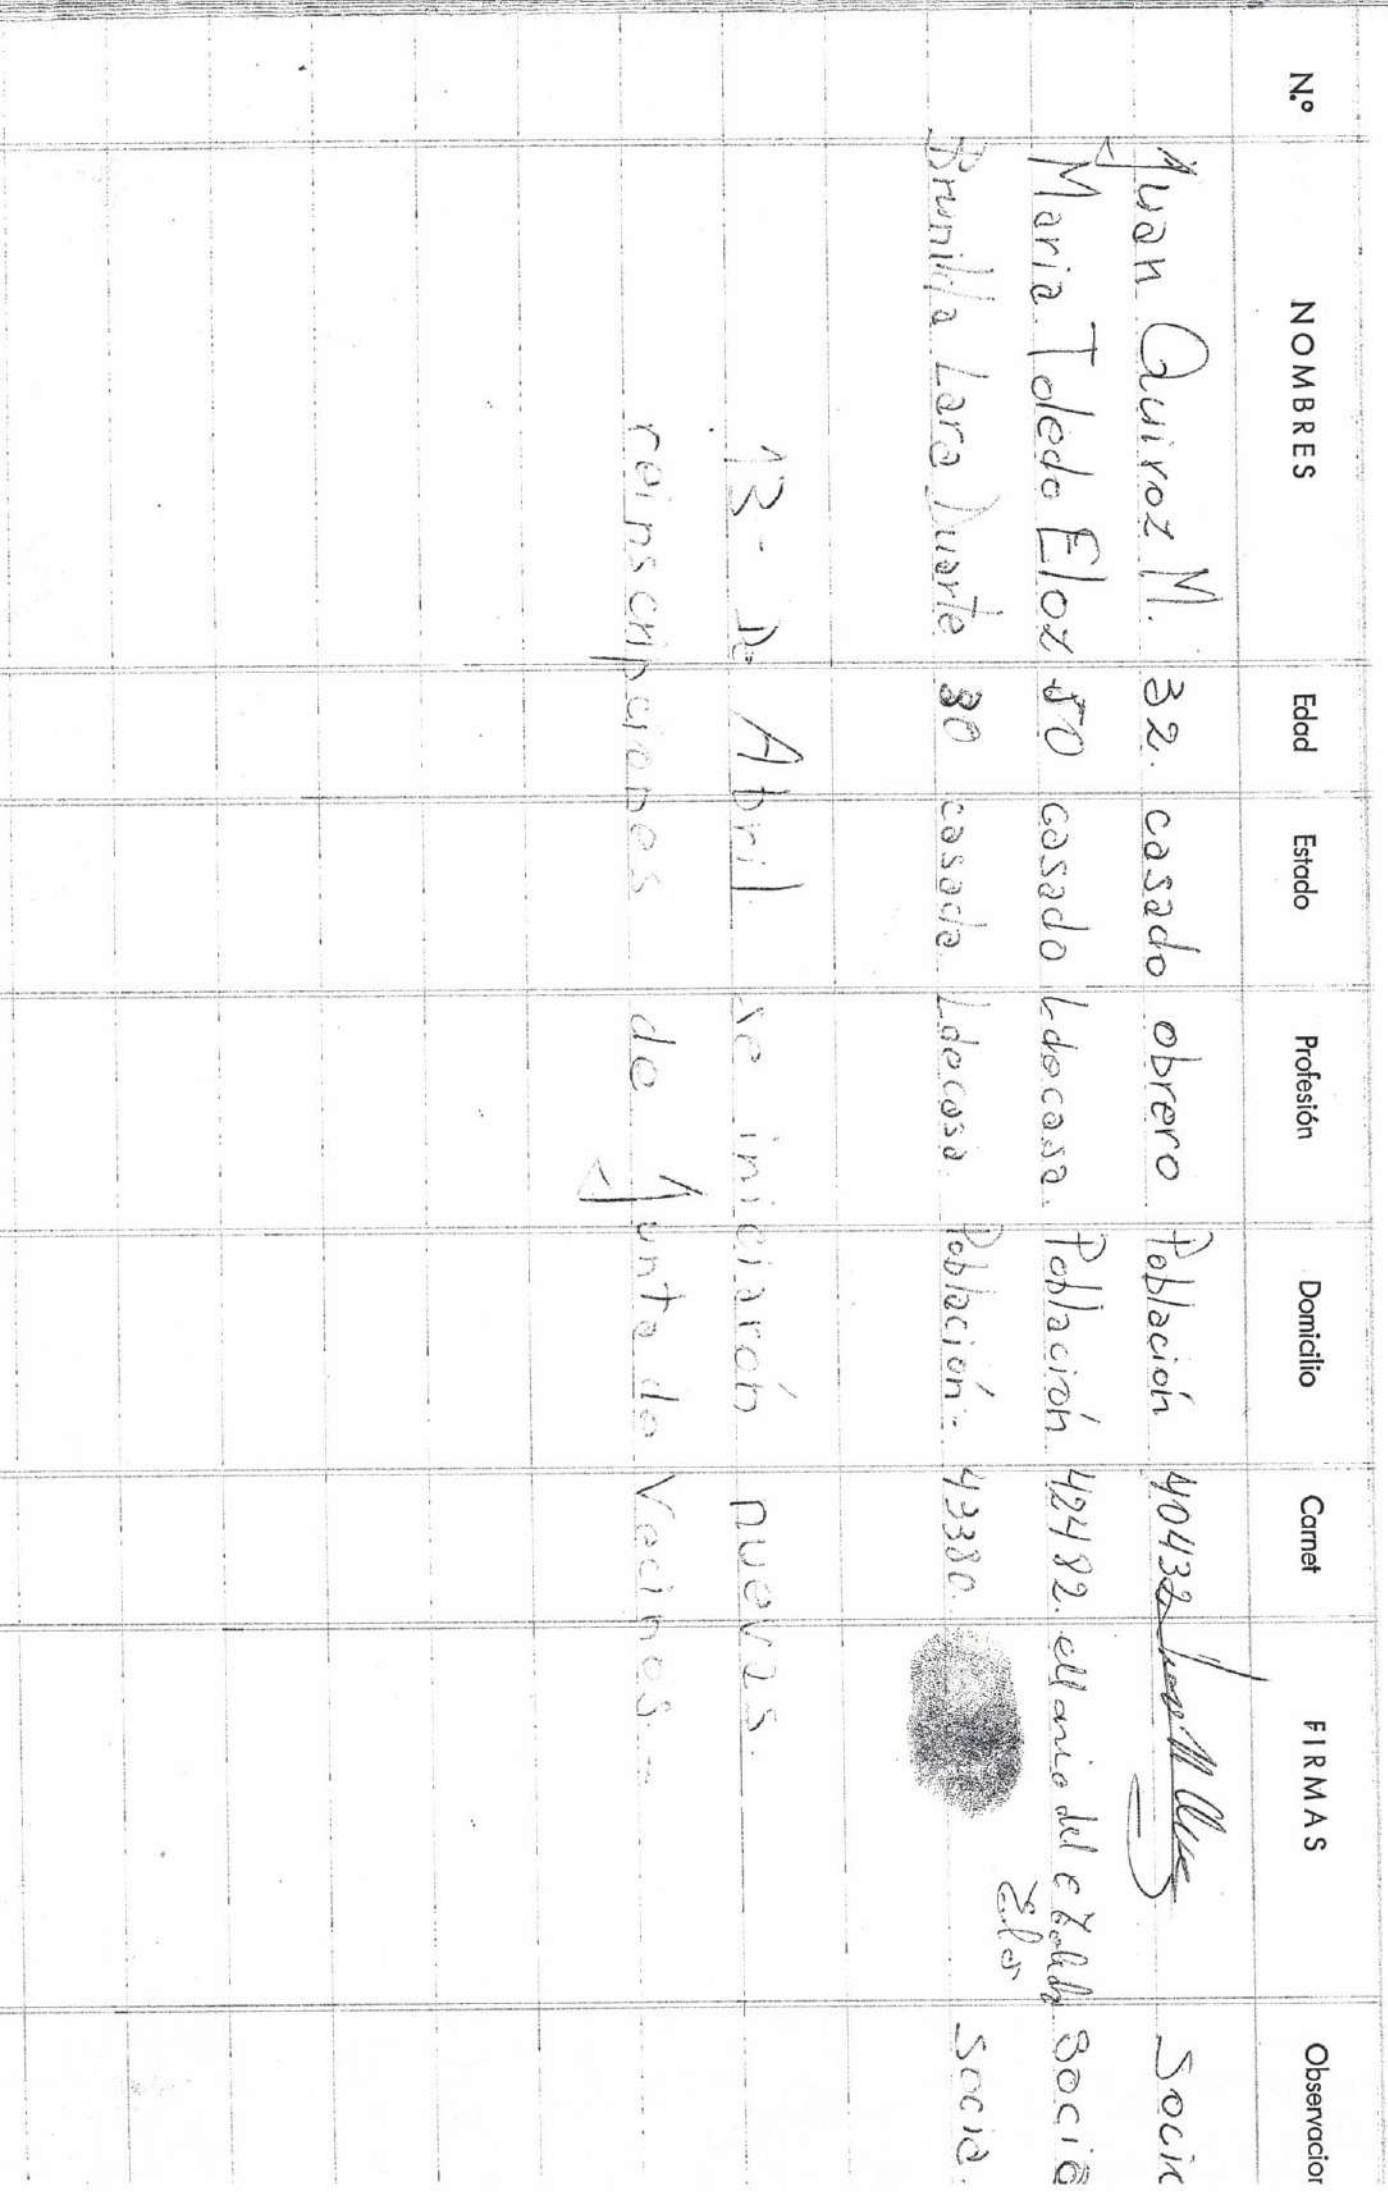 N.º NOMBRES Edad Estado Profesión Domicilio Carnet FIRMAS Observacion
Juan Quiroz M. 32. casado obrero Población 40432 Socio
Maria Toledo Eloz 50 casado L de casa. Población 42482. Maria del C Toledo Socia
Eloz
Brunilda Lara Duarte 30 casada L de casa. Población.- 43380. Socia.
13 - De Abril se iniciarón nuevas.
reinscripciones de Junta de Vecinos.-